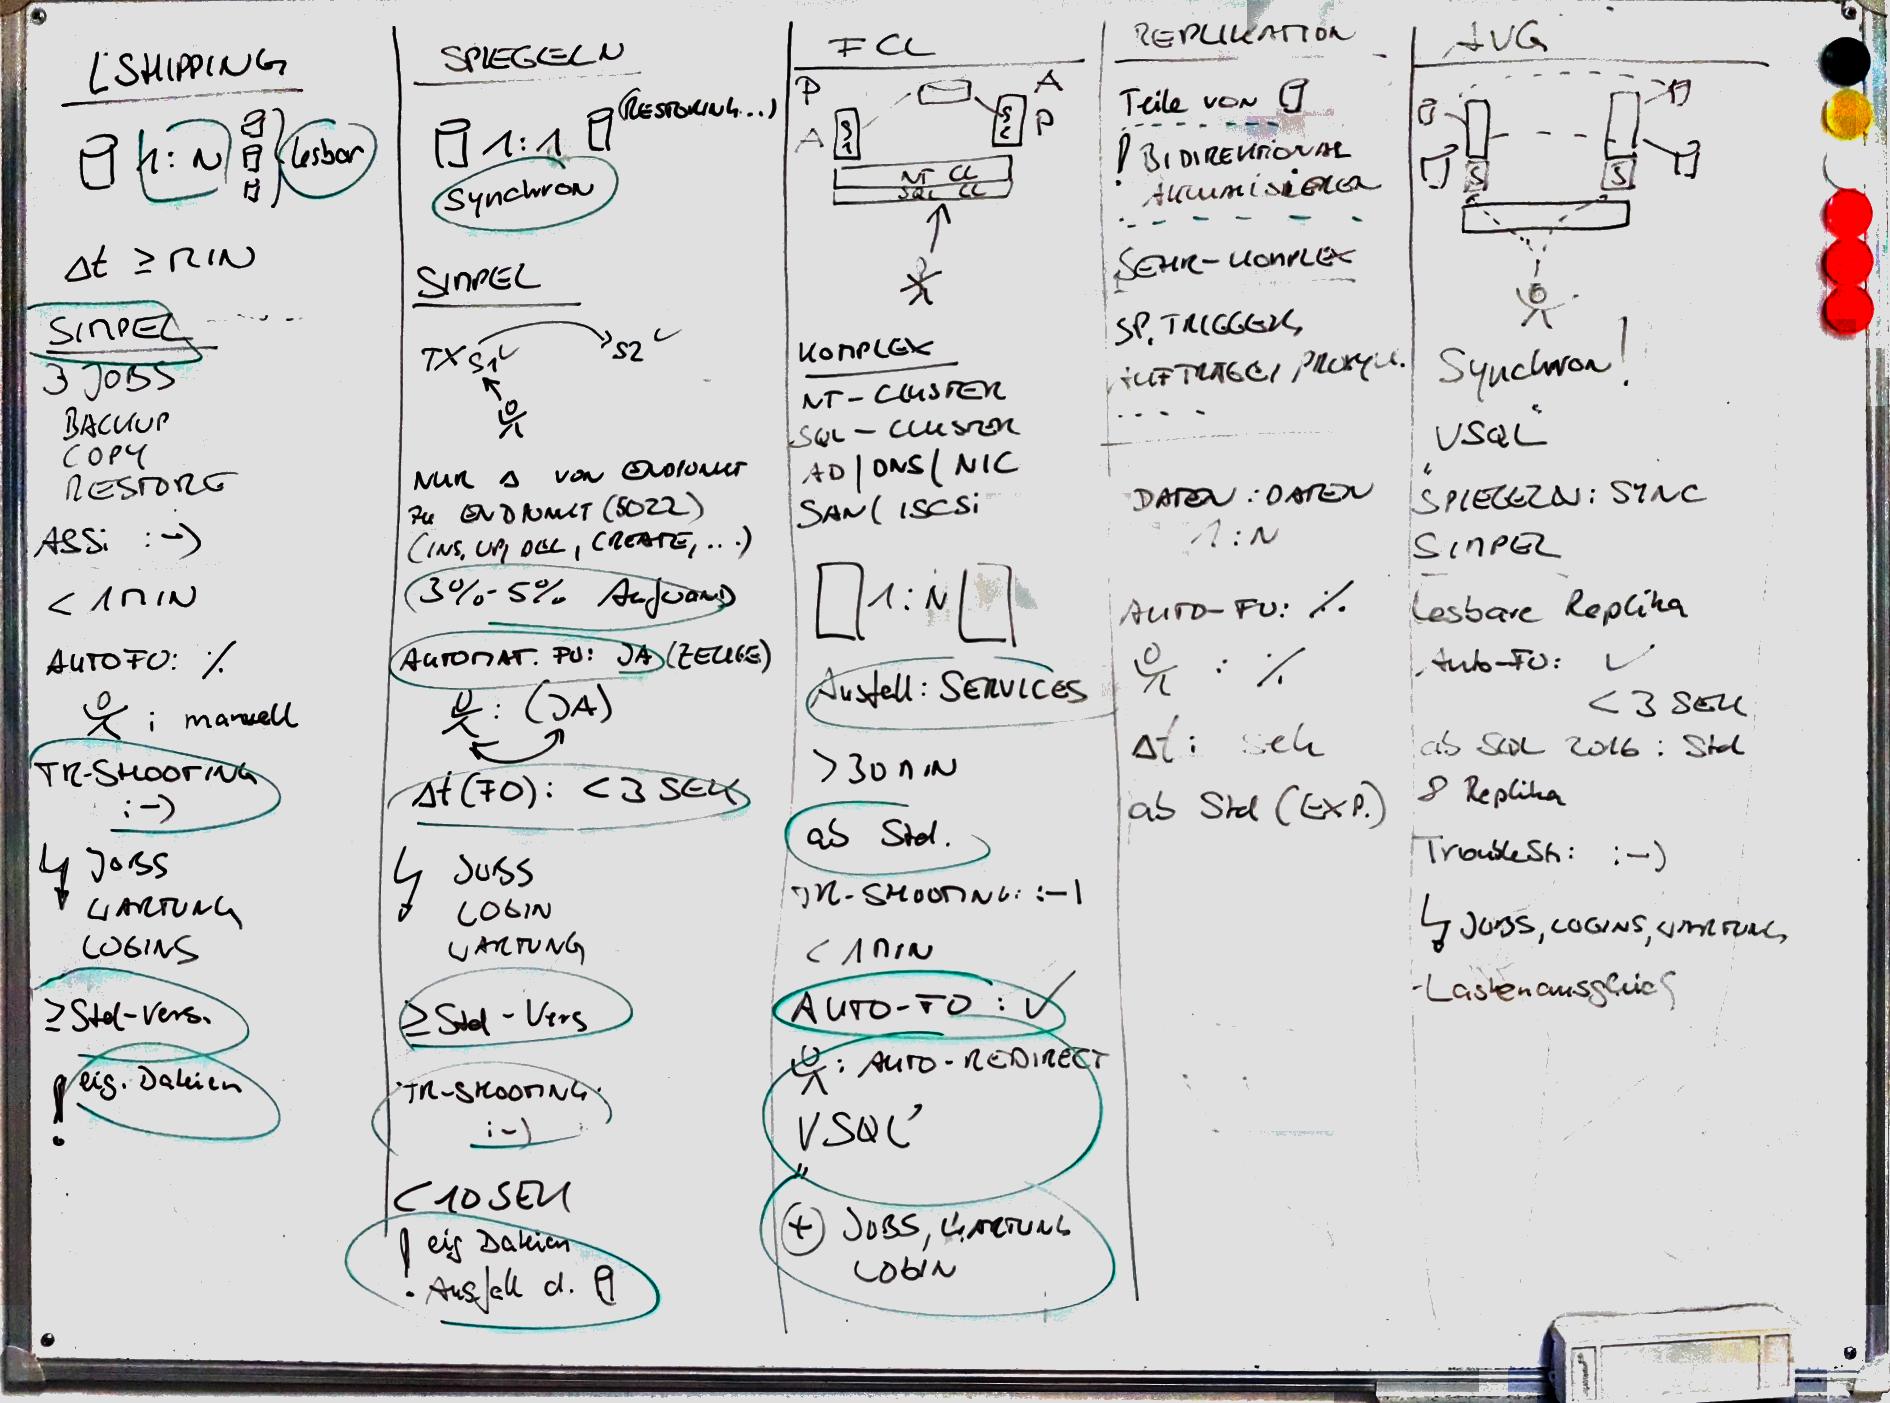 L'SHIPPING
1:N
lesbar
Δt ≥ MIN
SIMPEL
3 JOBS
BACKUP
COPY
RESTORE
ASSi :-)
< 1 MIN
AUTOFO: %
: manuell
TR-SHOOTING
:-)
JOBS
WARTUNG
LOGINS
≥ Std-Vers.
! eig. Dateien
SPIEGELN
1:1
(RESTORING...)
Synchron
SIMPEL
TX S1 ✓ S2 ✓
NUR Δ von ENDPUNKT
zu ENDPUNKT (5022)
(INS, UP, DEL, CREATE, ...)
(3%-5% Aufwand)
AUTOMAT. FO: JA (ZEUGE)
: (JA)
Δt (FO): < 3 SEK
JOBS
LOGIN
WARTUNG
≥ Std-Vers
TR-SHOOTING:
:-)
< 10 SEK
! eig Dateien
Ausfall d.
FCL
P A
A P
S1
S2
NT CL
SQL CL
KOMPLEX
NT-CLUSTER
SQL-CLUSTER
AD/DNS/NIC
SAN/ISCSi
1:N
Ausfall: SERVICES
>30 MIN
ab Std.
TR-SHOOTING: :-|
< 1 MIN
AUTO-FO: ✓
: AUTO-REDIRECT
"VSQL"
+ JOBS, WARTUNG
LOGIN
REPLIKATION
Teile von
! BIDIREKTIONAL
AKTUALISIEREN
SEHR-KOMPLEX
SP, TRIGGER,
AUFTRÄGE,
DATEN:DATEN
1:N
AUTO-FO: %
: %
Δt: sek
ab Std (EXP.)
AVG
S
S
Synchron!
"VSQL"
SPIEGELN: SYNC
SIMPEL
lesbare Replika
Auto-FO: ✓
< 3 SEK
ab SQL 2016: Std
8 Replika
TroubleSh: :-)
JOBS, LOGINS, WARTUNG
-Lastenausgleich